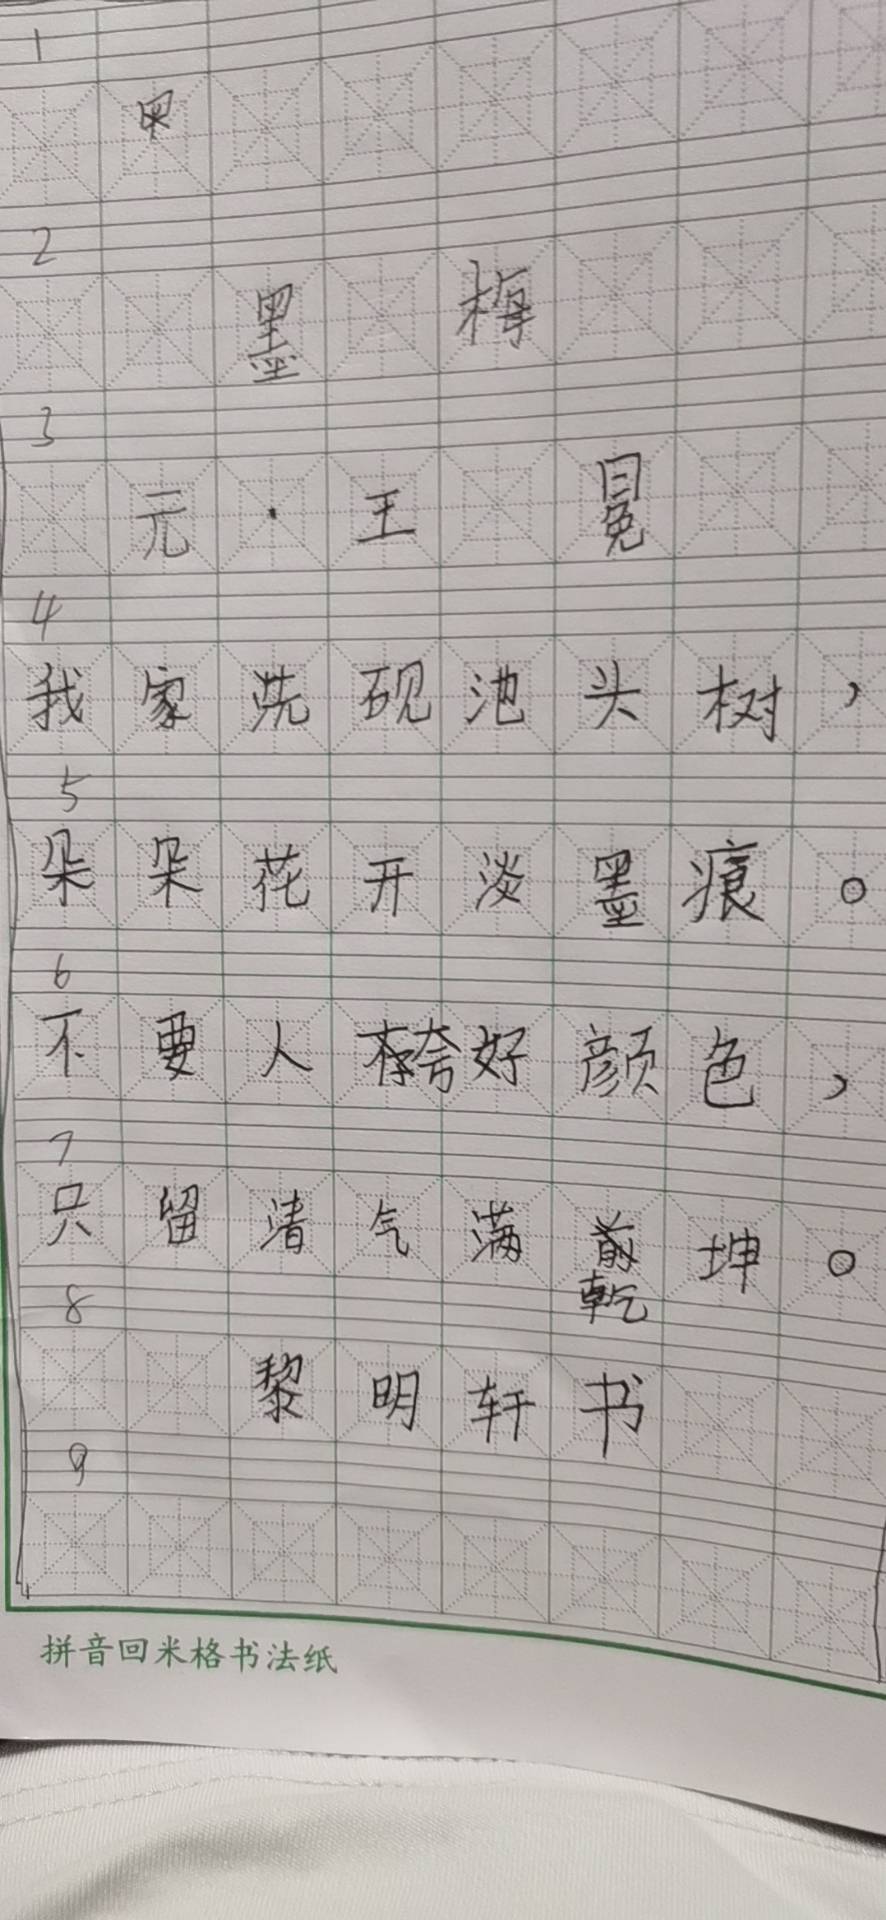 1
2
墨 梅
3
元·王 冕
4
我家洗砚池头树，
5
朵朵花开淡墨痕。
6
不要人夸好颜色，
7
只留清气满乾坤。
8
黎明轩书
9
拼音回米格书法纸